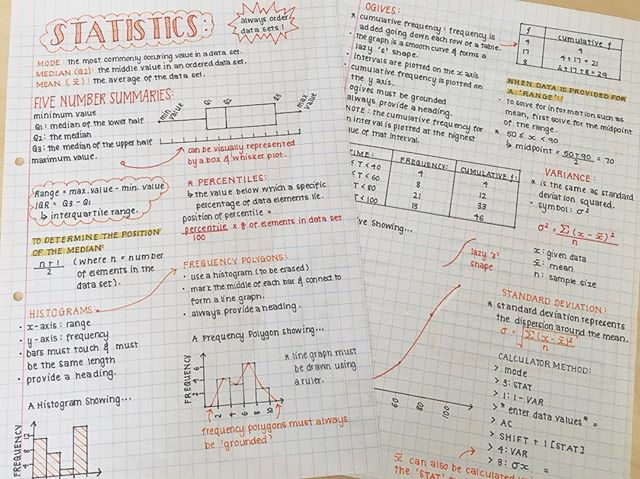 STATISTICS:
always order
data sets!
MODE: the most commonly occuring value in a data set.
MEDIAN (Q2): the middle value in an ordered data set.
MEAN (x̄): the average of the data set.
FIVE NUMBER SUMMARIES:
minimum value
Q1: median of the lower half
Q2: the median
Q3: the median of the upper half
maximum value.
min value
Q1
Q2
Q3
max value
can be visually represented
by a box & whisker plot.
Range = max. value - min. value
IQR = Q3 - Q1
↳ interquartile range.
* PERCENTILES:
↳ the value below which a specific
percentage of data elements lie.
position of percentile =
percentile/100 × # of elements in data set
TO DETERMINE THE POSITION
OF THE MEDIAN:
n+1/2 (where n = number
of elements in the
data set).
FREQUENCY POLYGONS:
• use a histogram (to be erased)
• mark the middle of each bar & connect to
form a line graph.
• always provide a heading.
HISTOGRAMS:
• x-axis: range
• y-axis: frequency
• bars must touch & must
be the same length
• provide a heading.
A Histogram Showing...
FREQUENCY
12
8
4
A Frequency Polygon Showing...
FREQUENCY
8
6
4
2
2 4 6 8 10
* line graph must
be drawn using
a ruler.
frequency polygons must always
be 'grounded'
OGIVES:
* cumulative frequency: frequency is
added going down each row of a table.
• the graph is a smooth curve & forms a
lazy 's' shape.
• intervals are plotted on the x axis
• cumulative frequency is plotted on
the y axis.
• ogives must be grounded
always provide a heading.
NOTE: the cumulative frequency for
an interval is plotted at the highest
value of that interval.
f cumulative f
4 4
17 4 + 17 = 21
8 4+17+8 = 29
TIME: FREQUENCY: CUMULATIVE f:
< T < 40 4 4
< T < 60 8 12
< T < 80 21 33
< T < 100 13 46
ve Showing...
lazy 's'
shape
60
80
WHEN DATA IS PROVIDED FOR
A 'RANGE':
• to solve for information such as
mean, first solve for the midpoint
of the range.
* 50 ≤ x < 90
↳ midpoint = 50+90/2 = 70
VARIANCE:
* is the same as standard
deviation squared.
• symbol: σ²
σ² = Σ(x - x̄)²/n
x: given data
x̄: mean
n: sample size
STANDARD DEVIATION:
* standard deviation represents
the dispersion around the mean.
σ = √Σ(x - x̄)²/n
CALCULATOR METHOD:
> mode
> 3: STAT
> 1: 1-VAR
> * enter data values * =
> AC
> SHIFT + 1 [STAT]
> 4: VAR
> 3: σx =
x̄ can also be calculated
the 'STAT'